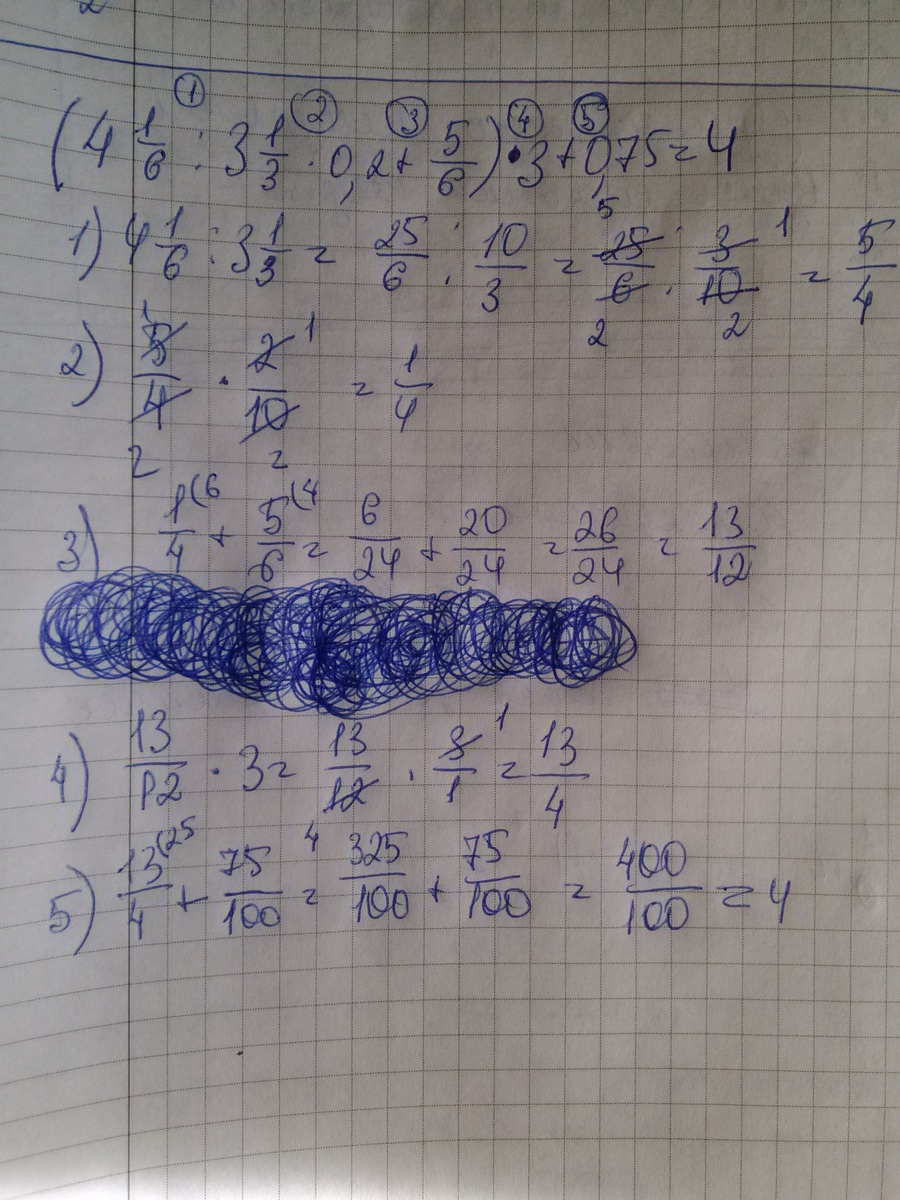 (4 1/6 : 3 1/3 · 0,2 + 5/6) · 3 + 0,75 = 4
① ② ③ ④ ⑤
1) 4 1/6 : 3 1/3 = 25/6 : 10/3 = 25/6 · 3/10 = 5/4
5 1 2 2
2) 5/4 · 2/10 = 1/4
1 1 2 2
3) 1/4 (6 + 5/6 (4 = 6/24 + 20/24 = 26/24 = 13/12
4) 13/12 · 3 = 13/12 · 3/1 = 13/4
1 4
5) 13/4 (25 + 75/100 = 325/100 + 75/100 = 400/100 = 4